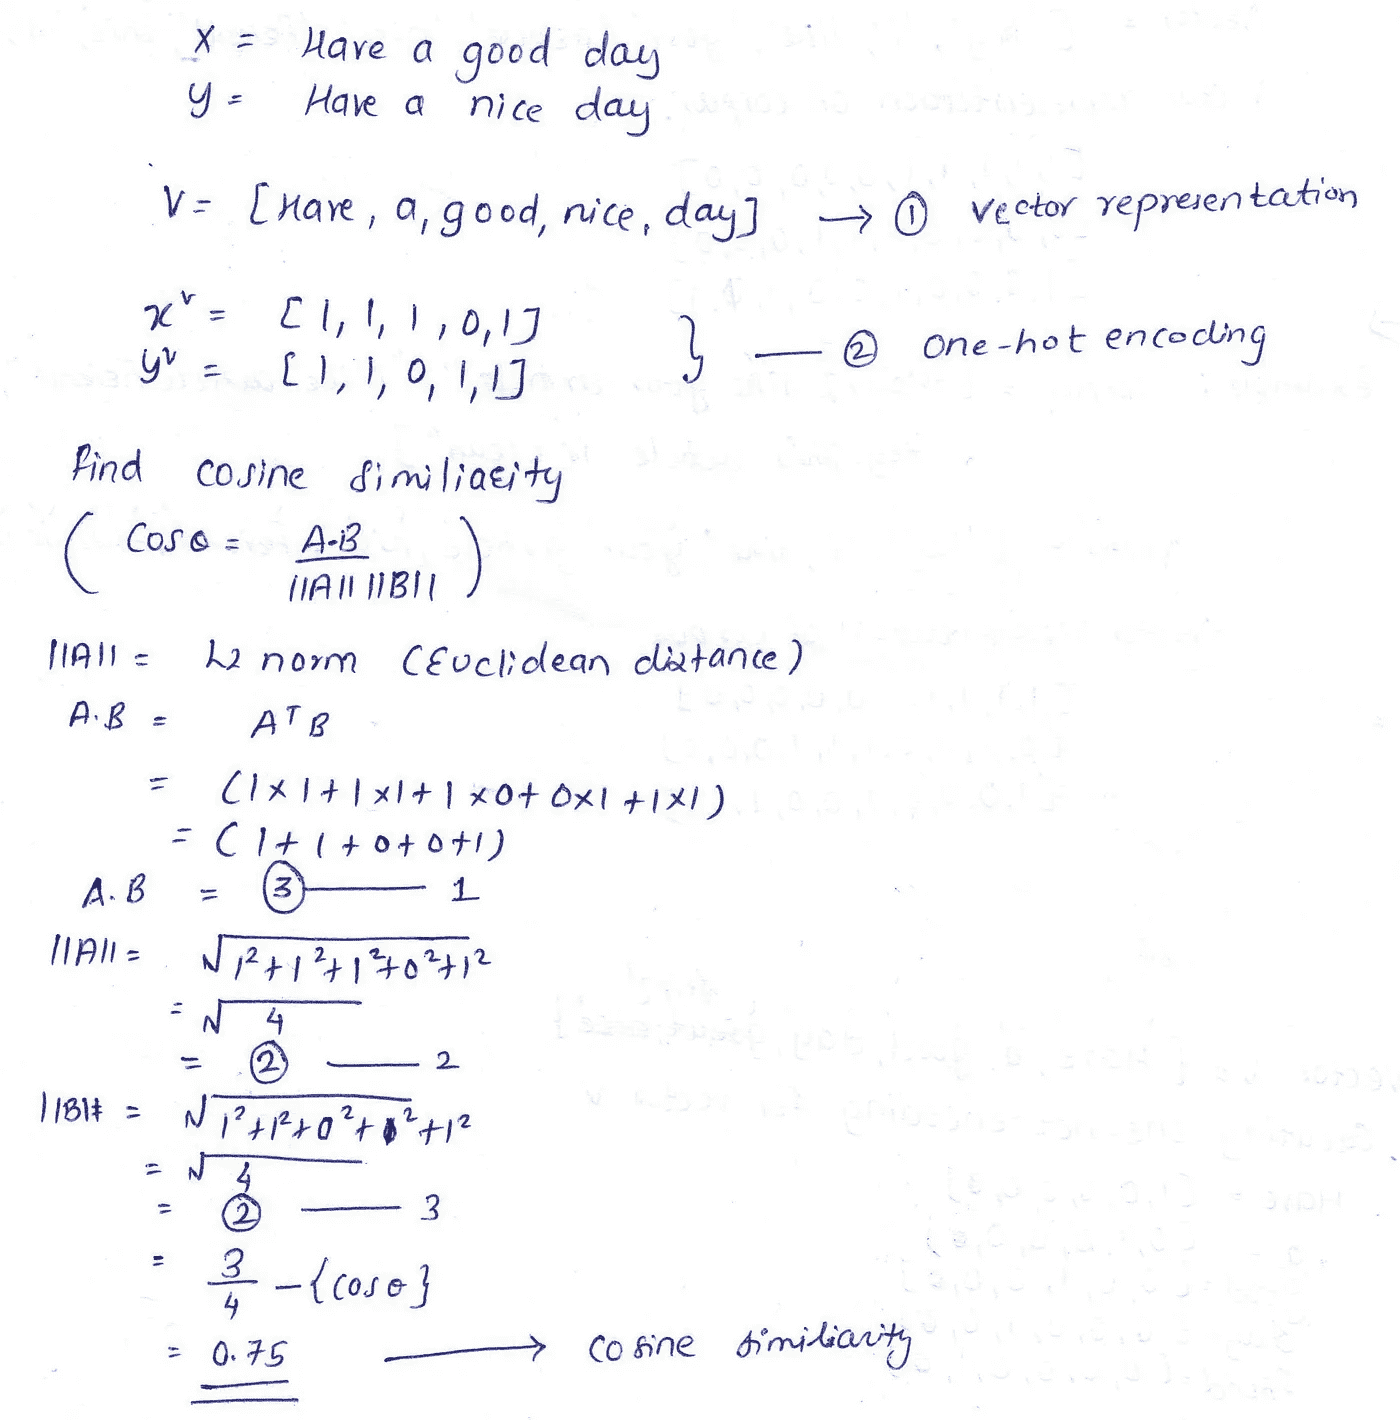 X = Have a good day
y = Have a nice day
V = [Have, a, good, nice, day] → ① vector representation
xᵛ = [1, 1, 1, 0, 1]
yᵛ = [1, 1, 0, 1, 1] } — ② one-hot encoding
find cosine similiarity
( Cosθ = A·B / ||A|| ||B|| )
||A|| = L2 norm (Euclidean distance)
A.B = AᵀB
= (1×1+1×1+1×0+0×1+1×1)
= (1+1+0+0+1)
A.B = ③ — 1
||A|| = √1²+1²+1²+0²+1²
= √4
= ② — 2
||B|| = √1²+1²+0²+1²+1²
= √4
= ② — 3
= 3/4 - {cosθ}
= 0.75 → cosine similiarity